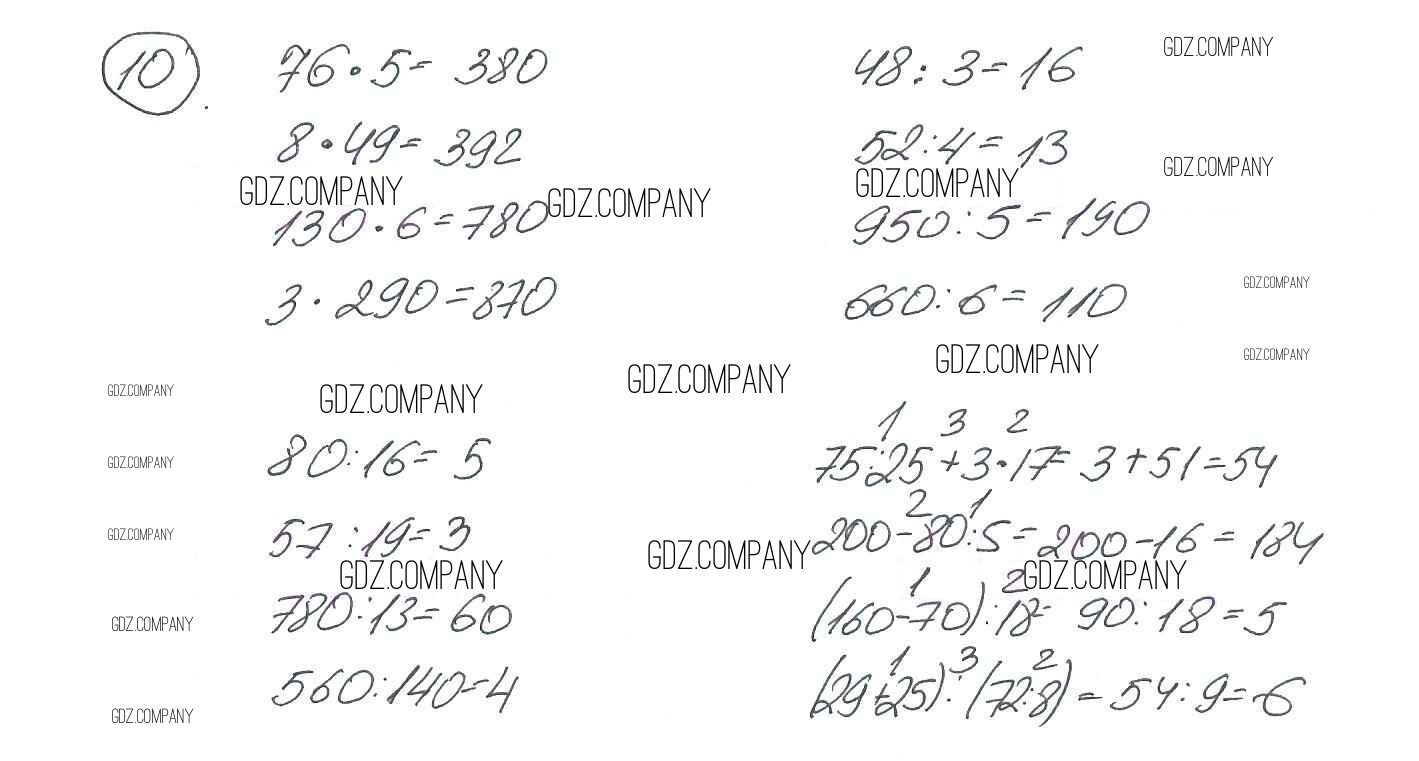 10. 76 · 5 = 380 48 : 3 = 16 GDZ.COMPANY
8 · 49 = 392 52 : 4 = 13 GDZ.COMPANY
GDZ.COMPANY GDZ.COMPANY GDZ.COMPANY
130 · 6 = 780 950 : 5 = 190
3 · 290 = 870 660 : 6 = 110 GDZ.COMPANY
GDZ.COMPANY GDZ.COMPANY
GDZ.COMPANY GDZ.COMPANY GDZ.COMPANY
1 3 2
GDZ.COMPANY 80 : 16 = 5 75 : 25 + 3 · 17 = 3 + 51 = 54
2 1
GDZ.COMPANY 57 : 19 = 3 GDZ.COMPANY 200 - 80 : 5 = 200 - 16 = 184
GDZ.COMPANY 1 2 GDZ.COMPANY
GDZ.COMPANY 780 : 13 = 60 (160 - 70) : 18 = 90 : 18 = 5
1 3 2
560 : 140 = 4 (29 + 25) : (72 : 8) = 54 : 9 = 6
GDZ.COMPANY